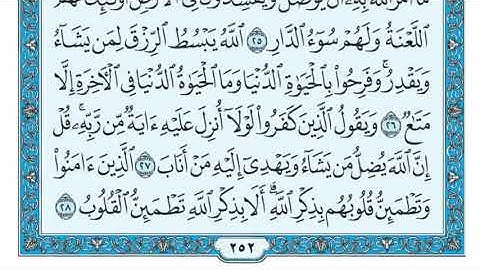 ٱللَّعۡنَةُ وَلَهُمۡ سُوٓءُ ٱلدَّارِ ٢٥ ٱللَّهُ يَبۡسُطُ ٱلرِّزۡقَ لِمَن يَشَآءُ
وَيَقۡدِرُۚ وَفَرِحُواْ بِٱلۡحَيَوٰةِ ٱلدُّنۡيَا وَمَا ٱلۡحَيَوٰةُ ٱلدُّنۡيَا فِي ٱلۡأٓخِرَةِ إِلَّا
مَتَٰعٞ ٢٦ وَيَقُولُ ٱلَّذِينَ كَفَرُواْ لَوۡلَآ أُنزِلَ عَلَيۡهِ ءَايَةٞ مِّن رَّبِّهِۦۚ قُلۡ
إِنَّ ٱللَّهَ يُضِلُّ مَن يَشَآءُ وَيَهۡدِيٓ إِلَيۡهِ مَنۡ أَنَابَ ٢٧ ٱلَّذِينَ ءَامَنُواْ
وَتَطۡمَئِنُّ قُلُوبُهُم بِذِكۡرِ ٱللَّهِۗ أَلَا بِذِكۡرِ ٱللَّهِ تَطۡمَئِنُّ ٱلۡقُلُوبُ ٢٨
٢٥٢